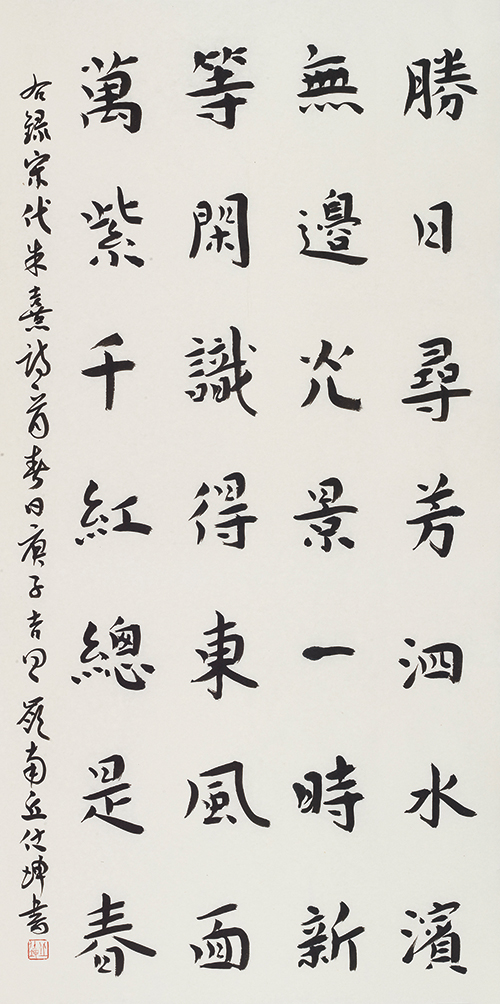 勝日尋芳泗水濱
無邊光景一時新
等閑識得東風面
萬紫千紅總是春
右録宋代朱熹詩一首春日庚子吉日嶺南丘仕坤書